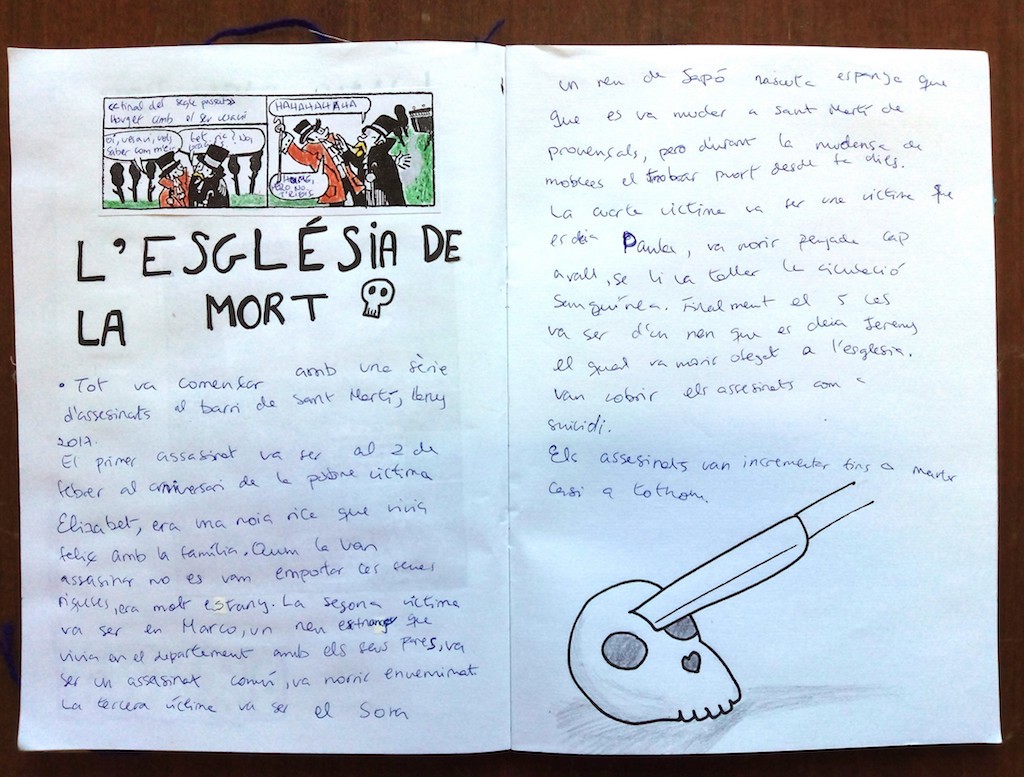 final del segle passat
lloguet amb el ser
saber com m
bet, ric? No,
HAHAHAHAHA
HOME,
PERO NO
L'ESGLÉSiA DE
LA MORT
• Tot va començar amb una sèrie
d'assesinats al barri de Sant Martí, l'any
2017.
El primer assasinat va ser al 2 de
febrer al aniversari de la pobre víctima
Elizabet, era una noia rica que vivia
feliç amb la família. Quan la van
assasinar no es vam emportar les seues
riqueses, era molt estrany. La segona víctima
va ser en Marco, un nen estranger que
vivia en el departement amb els seus pares, va
ser un assasinat comú, va morrir envenimat.
La tercera víctima va ser el Sora
un nen de Japó
que es va mudar a sant Martí de
provençals, pero durant la mudensa de
mobles el trobar mort desde fa dies.
La cuarte victime va ser une victime que
es deia Paula, va morir penjade cap
avall, se li va taller la ciculació
Sanguínea. Finalment el 5 cas
va ser d'un nen que es deia Jeremy
el qual va morir ofegat a l'esglesia.
Van cobrir els assesinats com a
suicidi.
Els assesinats van incrementar fins a matar
casi a tothom.